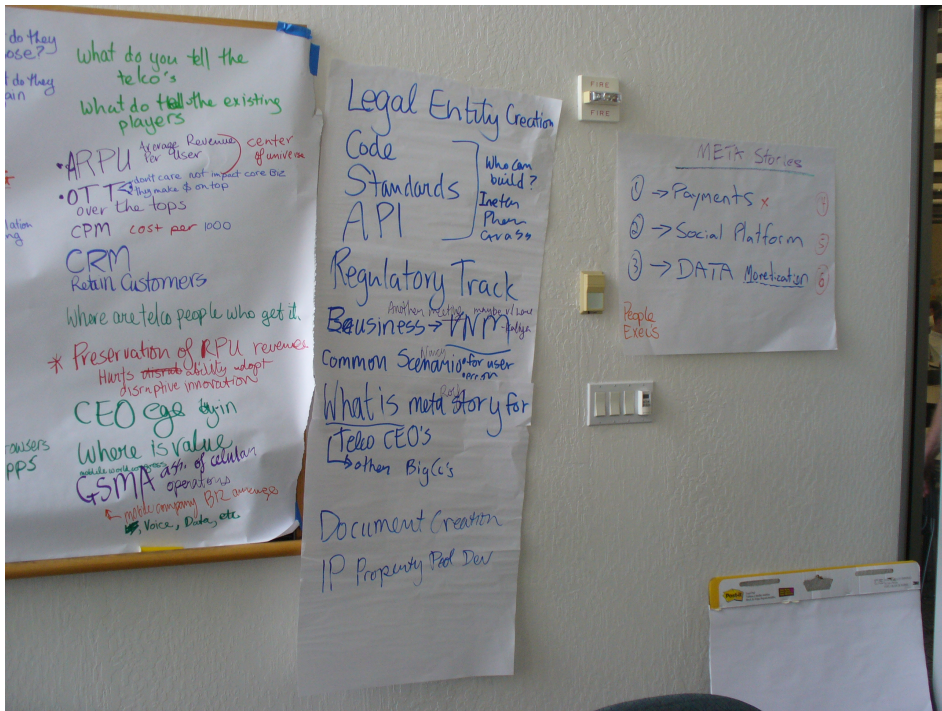 do they
ose?
t do they
ain
lation
ng
owsers
pps
What do you tell the
telco's
What do tell the existing
players
• ARPU Average Revenue
Per User
center
of universe
• OTT don't care not impact core Biz
they make $ on top
over the tops
CPM cost per 1000
CRM
Retain Customers
Where are telco people who get it.
* Preservation of RPU revenues
Hurts ability adopt
disruptive innovation
CEO ego buy in
Where is value
mobile world congress
GSMA ass. of celular
operations
mobile company BIZ
, Voice, Data, etc
Legal Entity Creation
Code
Standards
API
Who can
build?
Regulatory Track
Another meeting maybe w/
Business → VNM
Nancy
Common Scenario • for user
What is meta story for
Telco CEO's
→ other Big Co's
Document Creation
IP Property Pool Dev
FIRE
FIRE
META Stories
① → Payments x ④
② → Social Platform ⑤
③ → DATA Monetization ⑥
People
Exec's
Post-it
3M